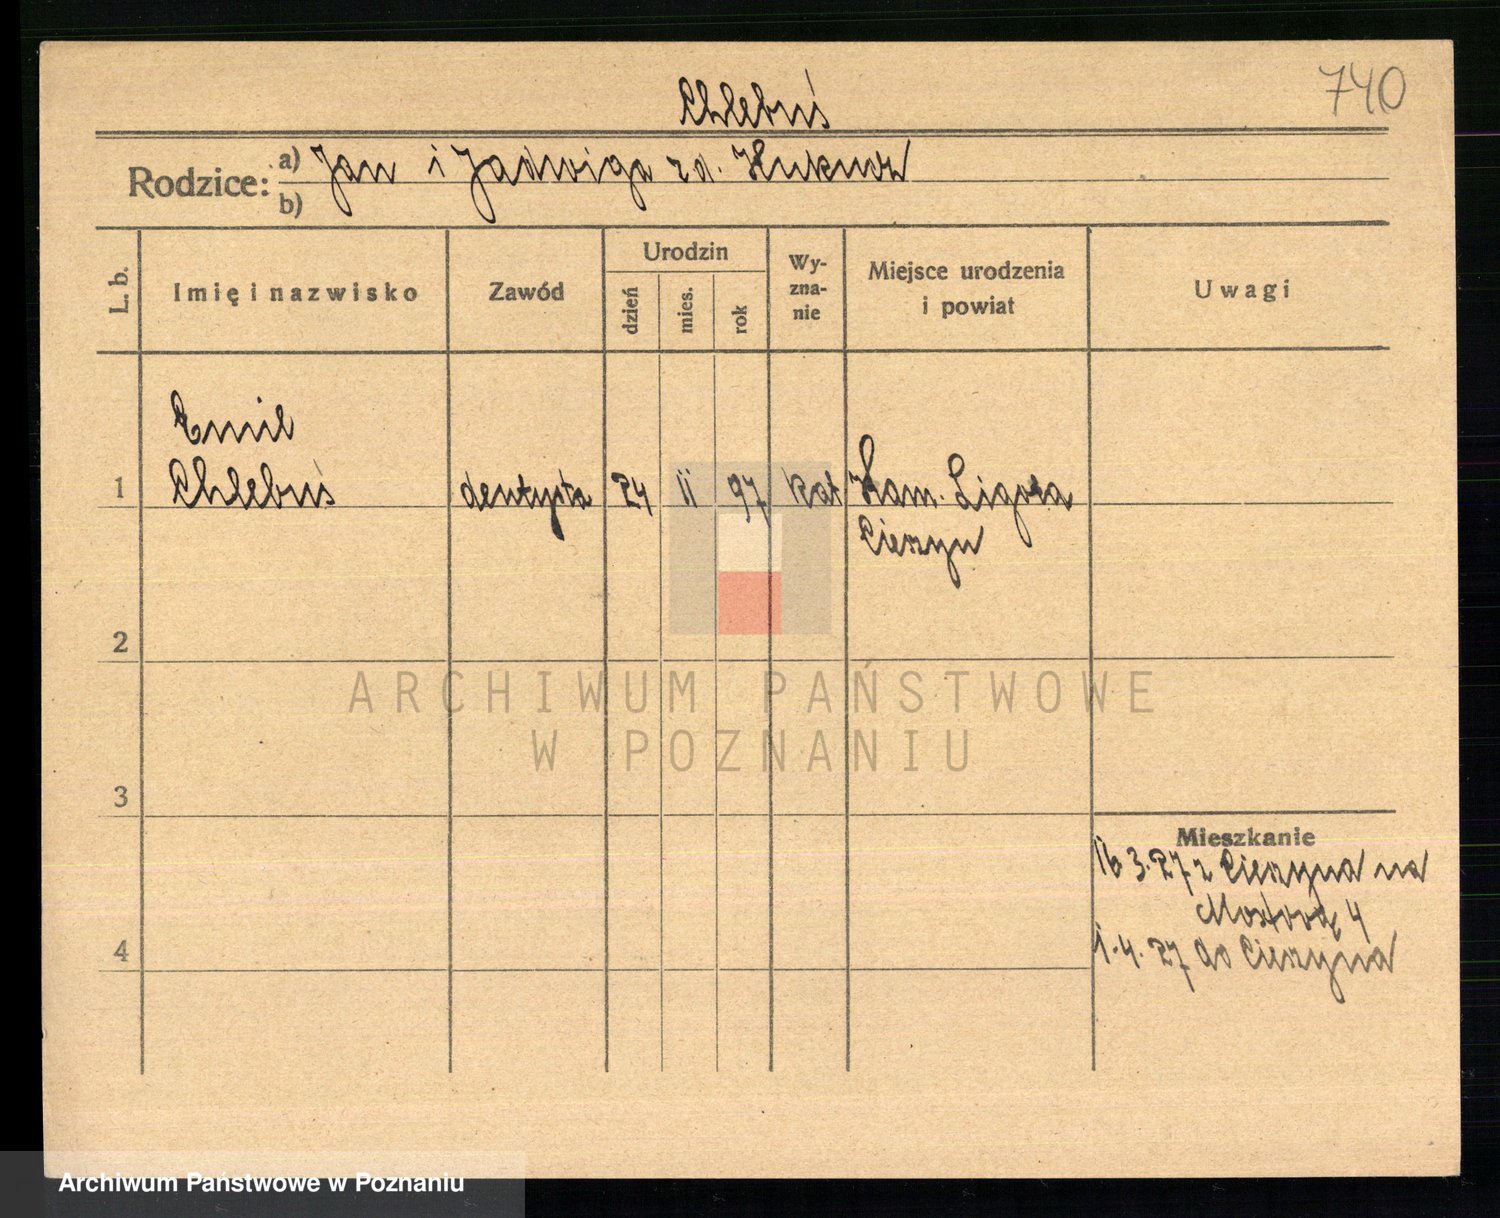 740
Chlebuś
Rodzice: a) Jan i Jadwiga zd.
b)
L. b.
Imię i nazwisko
Zawód
Urodzin
dzień
mies.
rok
Wy-
zna-
nie
Miejsce urodzenia
i powiat
Uwagi
Emil
1 Chlebuś dentysta 24 II 97 kat Kam. Ligota
Cieszyn
2
ARCHIWUM PAŃSTWOWE
W POZNANIU
3
Mieszkanie
16 3. 27 z Cieszyna na
Mostową 4
4
1. 4. 27 do Cieszyna
Archiwum Państwowe w Poznaniu